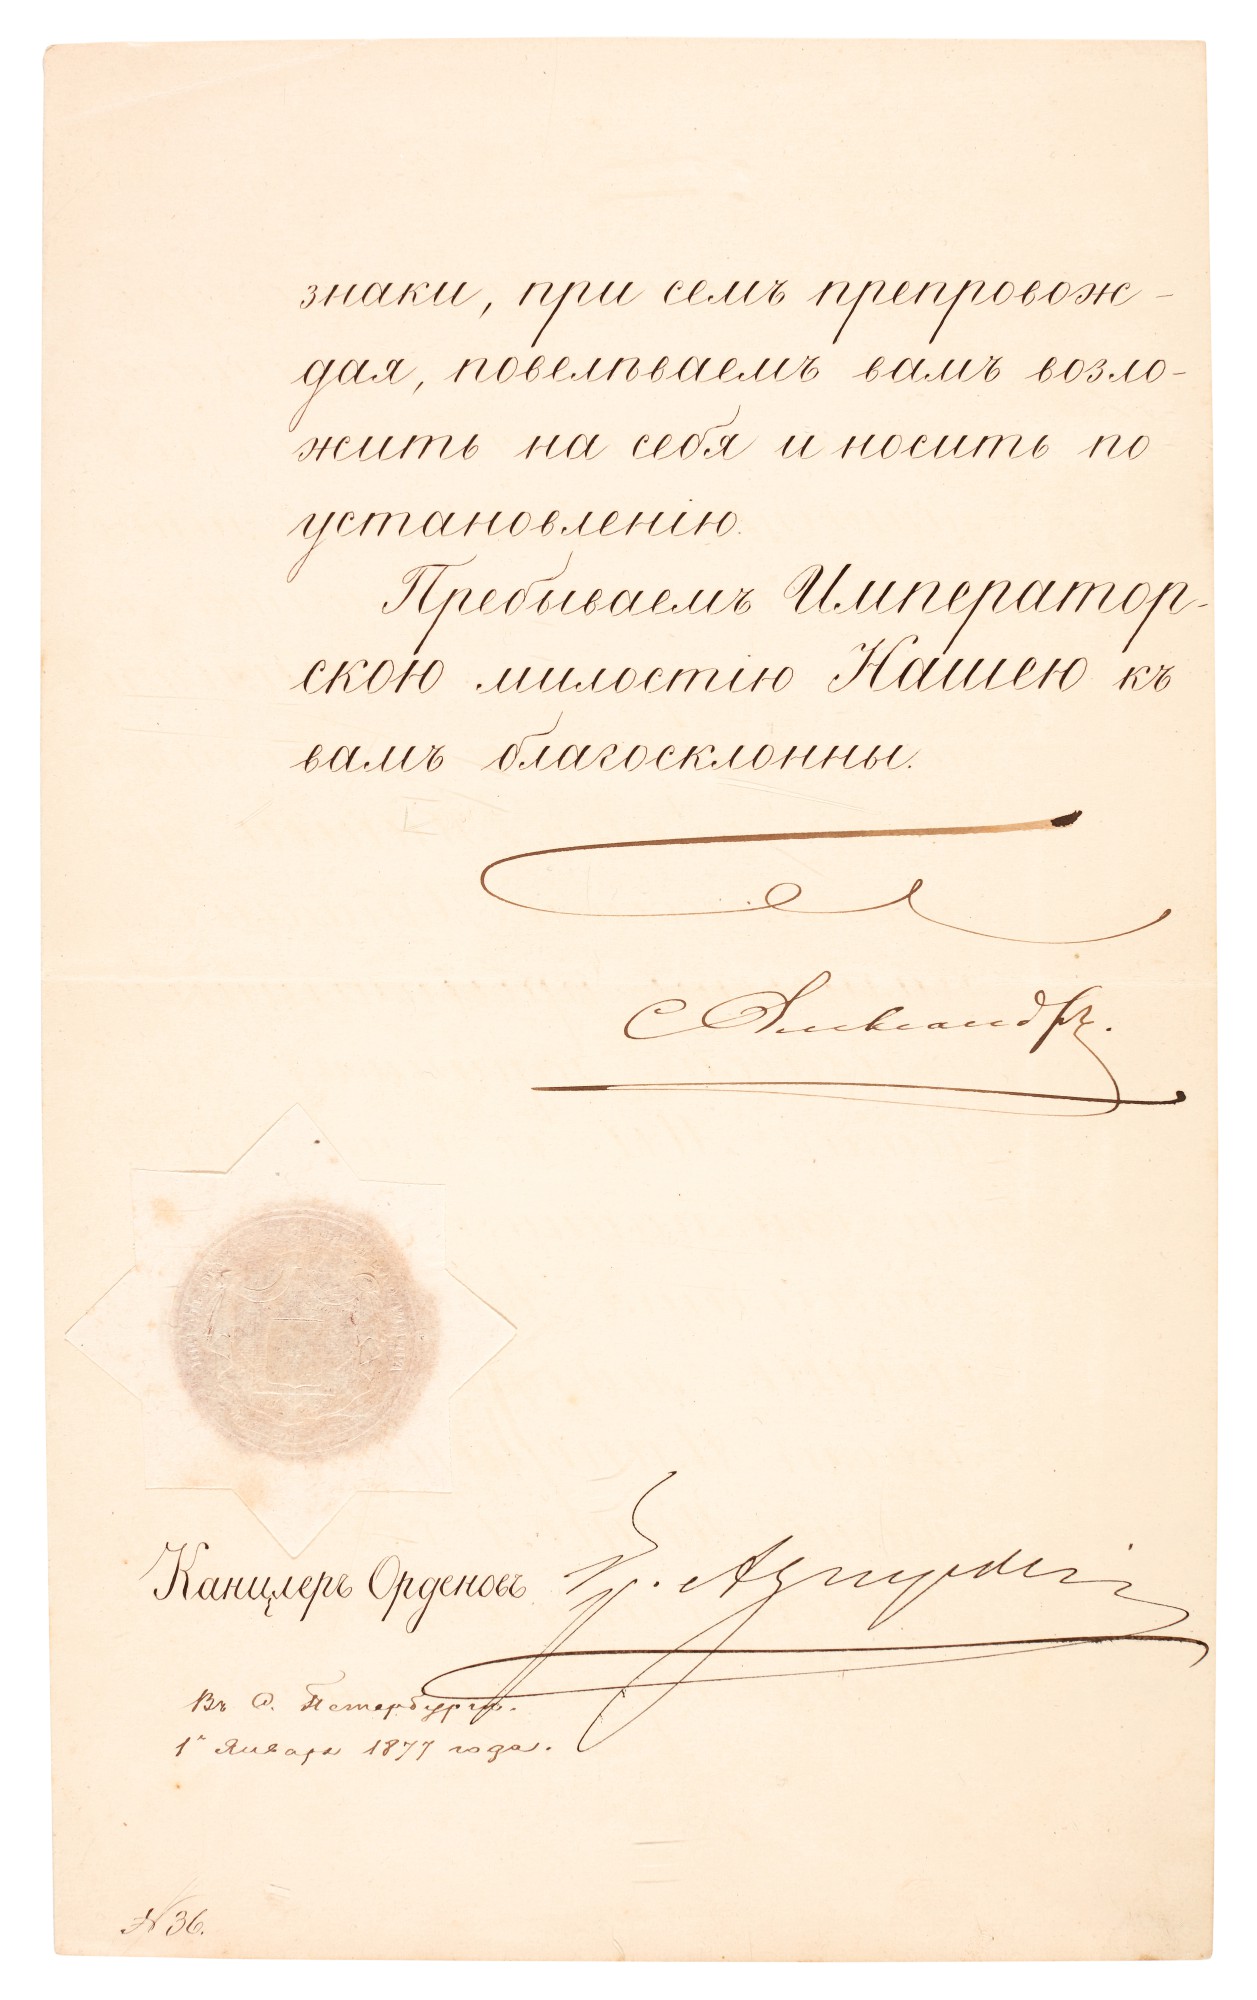 знаки, при семъ препровож-
дая, повелѣваемъ вамъ возло-
жить на себя и носить по
установленію.
Пребываемъ Император-
скою милостію Нашею къ
вамъ благосклонны.
Александръ.
Канцлеръ Орденовъ Гр.
Въ С. Петербургѣ.
1го Января 1877 года.
№ 36.